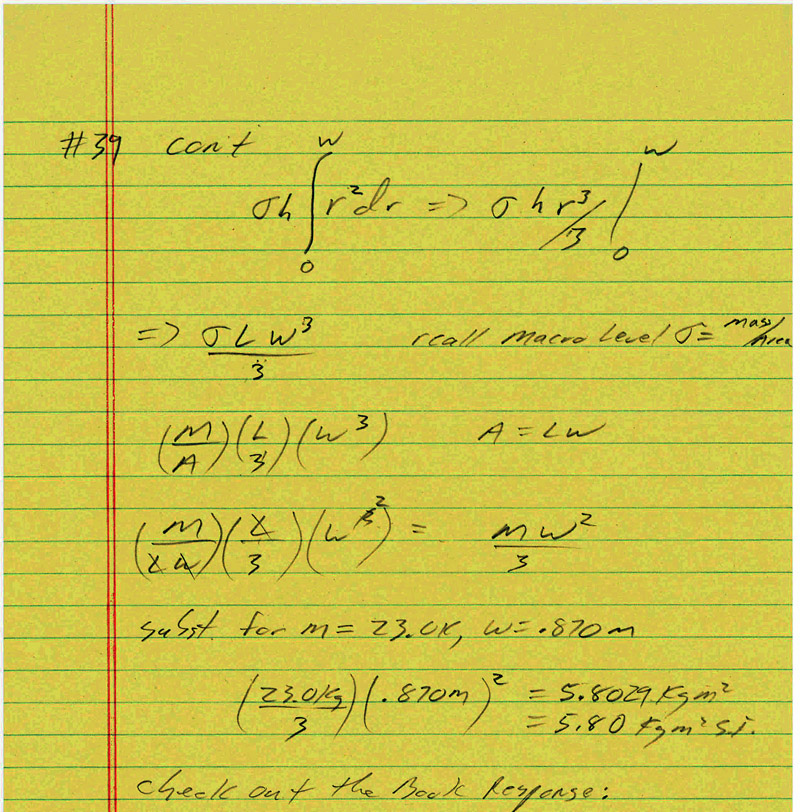 #39 cont
σh ∫₀ʷ r²dr => σ h r³/3 |₀ʷ
=> σ L w³/3 rcall Macro Level σ= mass/Area
(M/A)(L/3)(w³) A = LW
(M/LW)(L/3)(w³²) = Mw²/3
subst. for m = 23.0K, w= .870m
(23.0kg/3)(.870m)² = 5.8029 Kgm²
= 5.80 Kgm² S.I.
check out the Book Response: